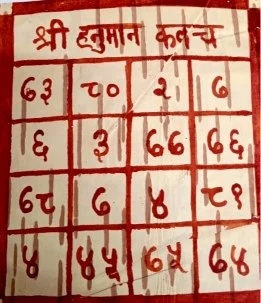 श्री हनुमान कवच
७३ ८० २ ७
६ ३ ७७ ७६
७८ ७ ४ ८१
४ ४५ ७५ ७४